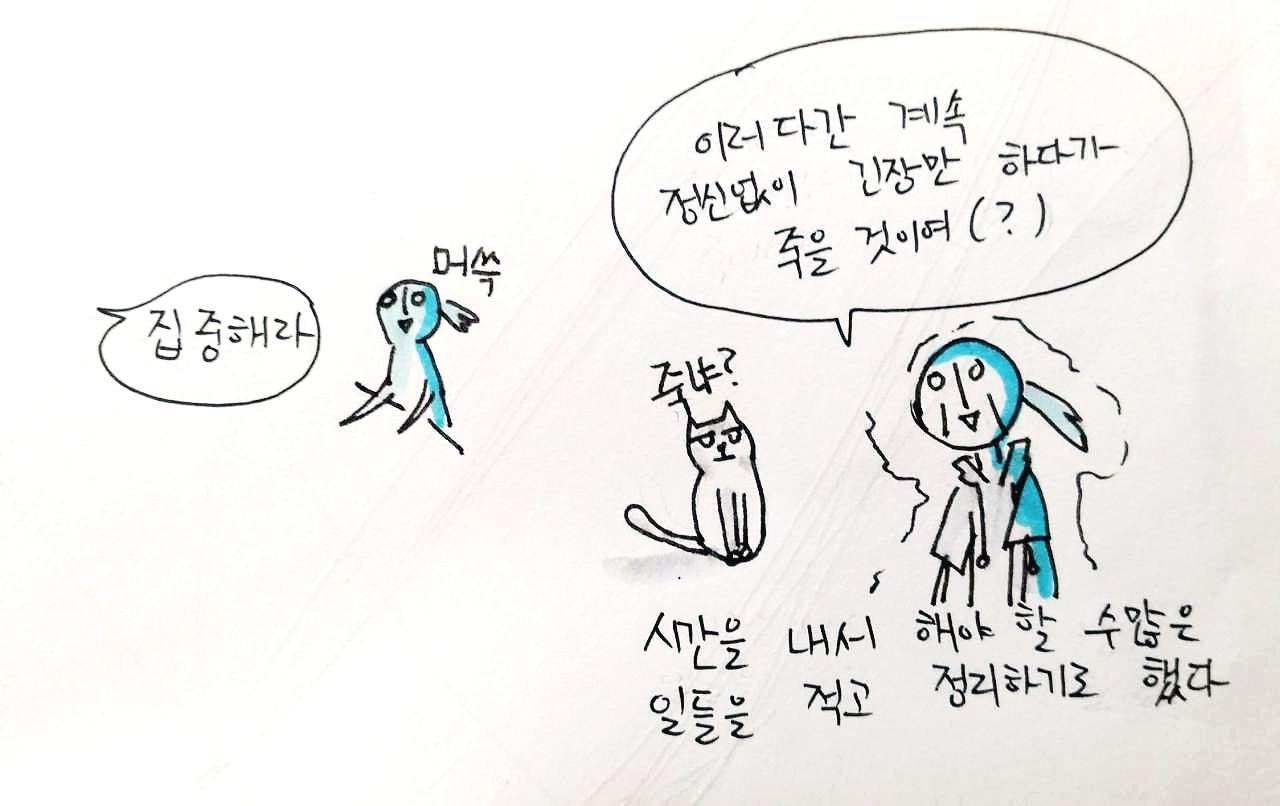 집중해라
머쓱
이러다간 계속
정신없이 긴장만 하다가
죽을 것이여(?)
죽냐?
시간을 내서 해야 할 수많은
일들을 적고 정리하기로 했다